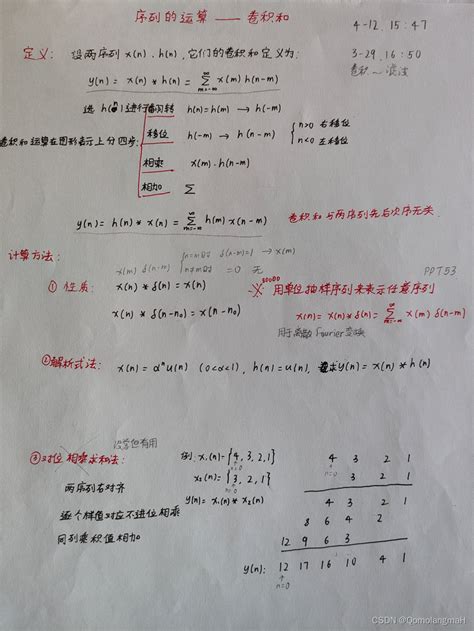 序列的运算 —— 卷积和
4-12. 15:47
3-29. 16:50
卷积 — 滤波
定义： 设两序列 x(n). h(n), 它们的卷积和定义为:
y(n) = x(n) * h(n) = ∞∑m=-∞ x(m) h(n-m)
选 h( )进行翻转 h(n)=h(m) → h(-m)
卷积和运算在图形表示上分四步:
移位 h(-m) → h(n-m) {n>0 右移位
n<0 左移位
相乘 x(m)·h(n-m)
相加 ∑
y(n) = h(n) * x(n) = ∞∑m=-∞ h(m) x(n-m)
卷积和与两序列先后次序无关.
计算方法:
x(m) δ(n-m) {n=m时 δ(n-m)=1 → x(m)
n≠m时 =0 无
PPT53
① 性质: x(n) * δ(n) = x(n)
※ 用单位抽样序列来表示任意序列
x(n) = x(n)*δ(n) = ∞∑m=-∞ x(m) δ(n-m)
x(n) * δ(n-n₀) = x(n-n₀)
用于离散Fourier变换
②解析式法: x(n) = αⁿu(n) (0<α<1), h(n)=u(n), 求y(n) = x(n) * h(n)
③对位相乘求和法:
没学但有用
例. x₁(n)={4, 3, 2, 1}
n=0
x₂(n)={3, 2, 1}
n=0
y(n)= x₁(n) * x₂(n)
两序列右对齐
逐个样值对应不进位相乘
同列乘积值相加
4 3 2 1
n=0
3 2 1
4 3 2 1
8 6 4 2
12 9 6 3
y(n): 12 17 16 10 4 1
n=0
CSDN @QomolangmaH